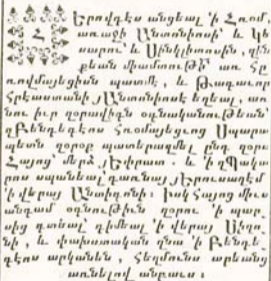 Երովդէս անցեալ ՚ի Հռոմ,
Հ առաջի Անտոնիոսի՝ և Կե
սարու՝ և Սինկլիտոսին, զին
քեան միամտութիՒն առ Հռ
ռովմայեցիսն պատմէ, և Թագաւոր
Հրէաստանի յԱնտոնիոսէ եղեալ, առ
նու իւր զօրավիգն օգնականութեան՝
զԲենդեդէոս Հռօմայեցւոց Սպարա
պետն զօրօք պատերազմել ընդ զօրս
Հայոց՝ մերձ յԵփրատ. և ՚ի զՊակա
րոս սպանեալ դառնայ յԵրուսաղէմ
՚ի վերայ Անտիգոնի։ Իսկ Հայոց միւս
անգամ օգնութիւն զօրու ՚ի պար
սից գտեալ՝ դիմեալ ՚ի վերայ Սիղո
նի, և փախստական զնա ՚ի Բենդե
դէոս արկանեն, Հեղմունս արեանց
առնելով անբաւս։